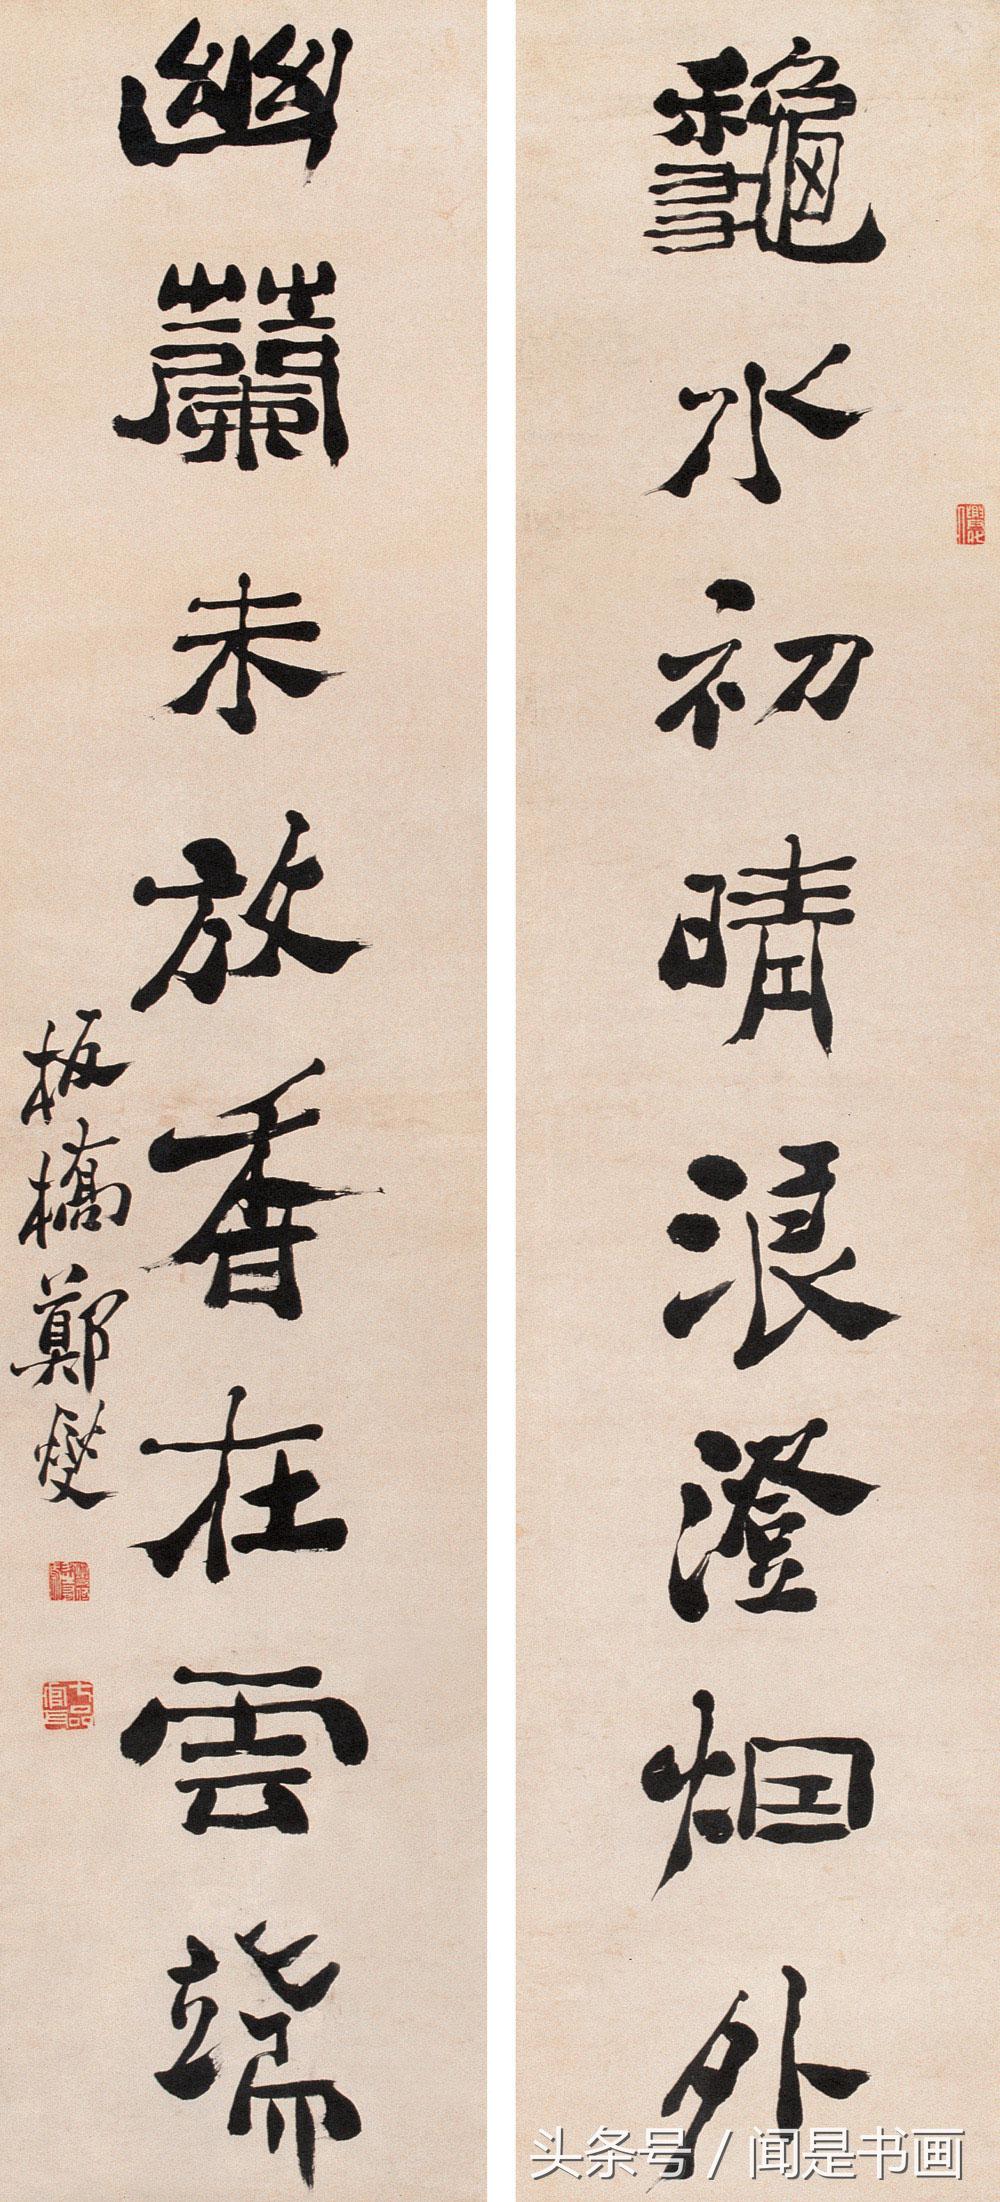 龝水初晴浪澄烟外
幽蘭未放香在雲端
板橋鄭燮
七品官耳
头条号 / 闻是书画